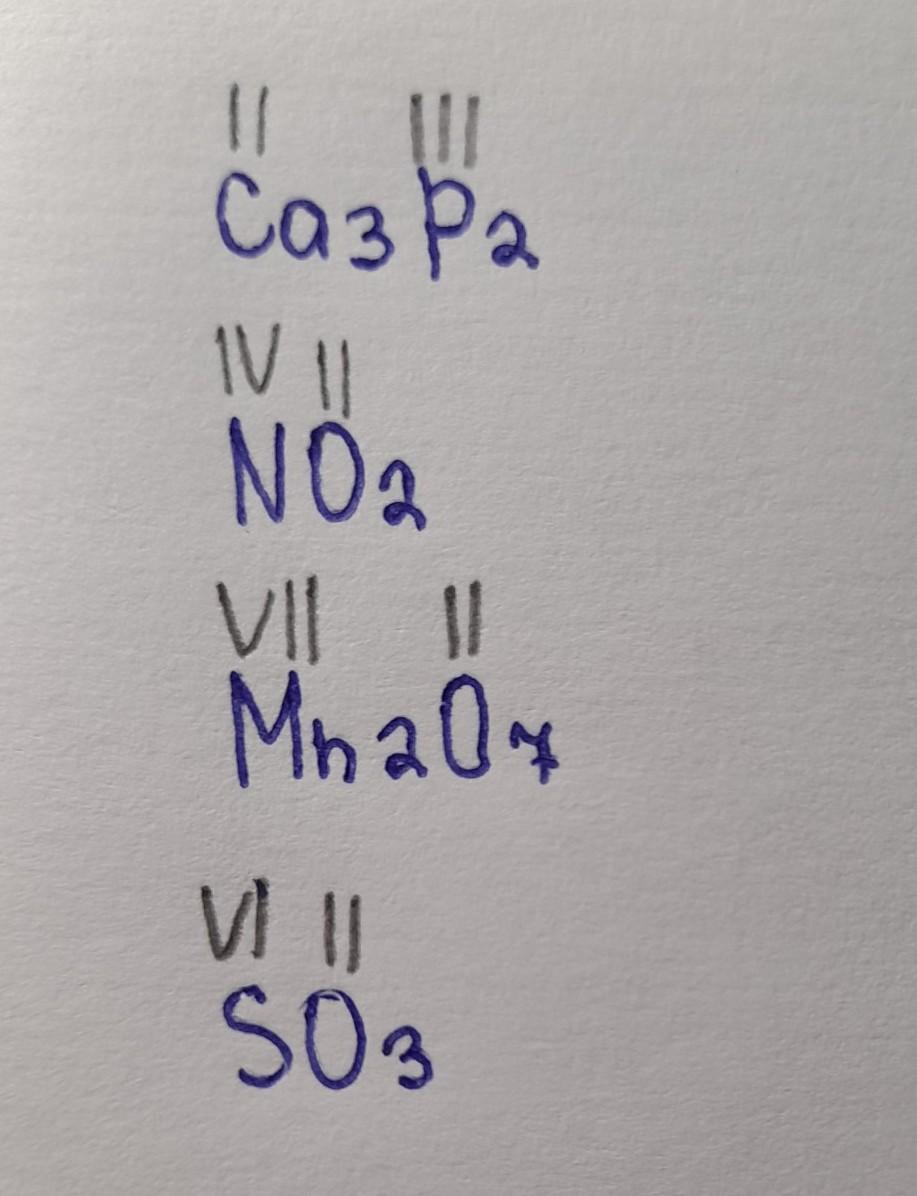 II III
Ca3P2
IV II
NO2
VII II
Mn2O7
VI II
SO3